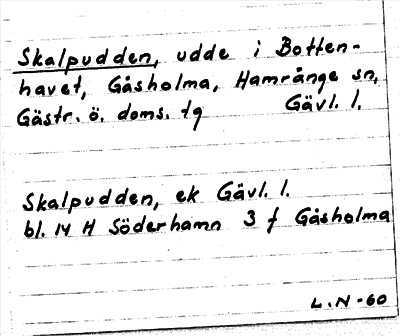 Skalpudden, udde i Botten-
havet, Gåsholma, Hamrånge sn,
Gästr. ö. doms. tg Gävl. l.
Skalpudden, ek Gävl. l.
bl. 14 H Söderhamn 3 f Gåsholma
L.N-60